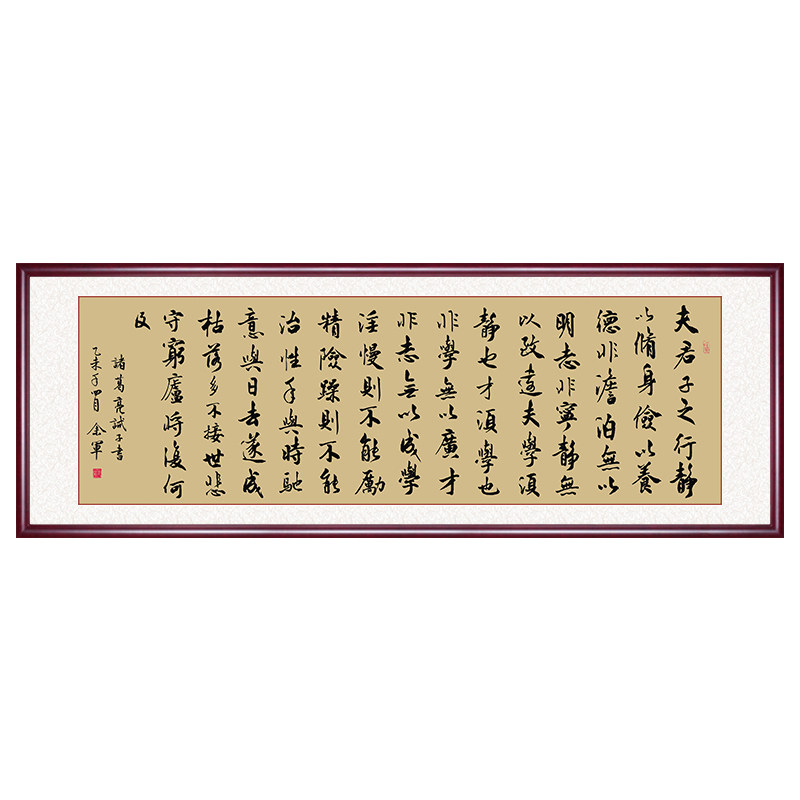 夫君子之行靜
以脩身儉以養
德非澹泊無以
明志非寧靜無
以致遠夫學須
靜也才須學也
非學無以廣才
非志無以成學
淫慢則不能勵
精險躁則不能
治性年與時馳
意與日去遂成
枯落多不接世悲
守窮廬將復何
及
諸葛亮誡子書
乙未年四月 余軍